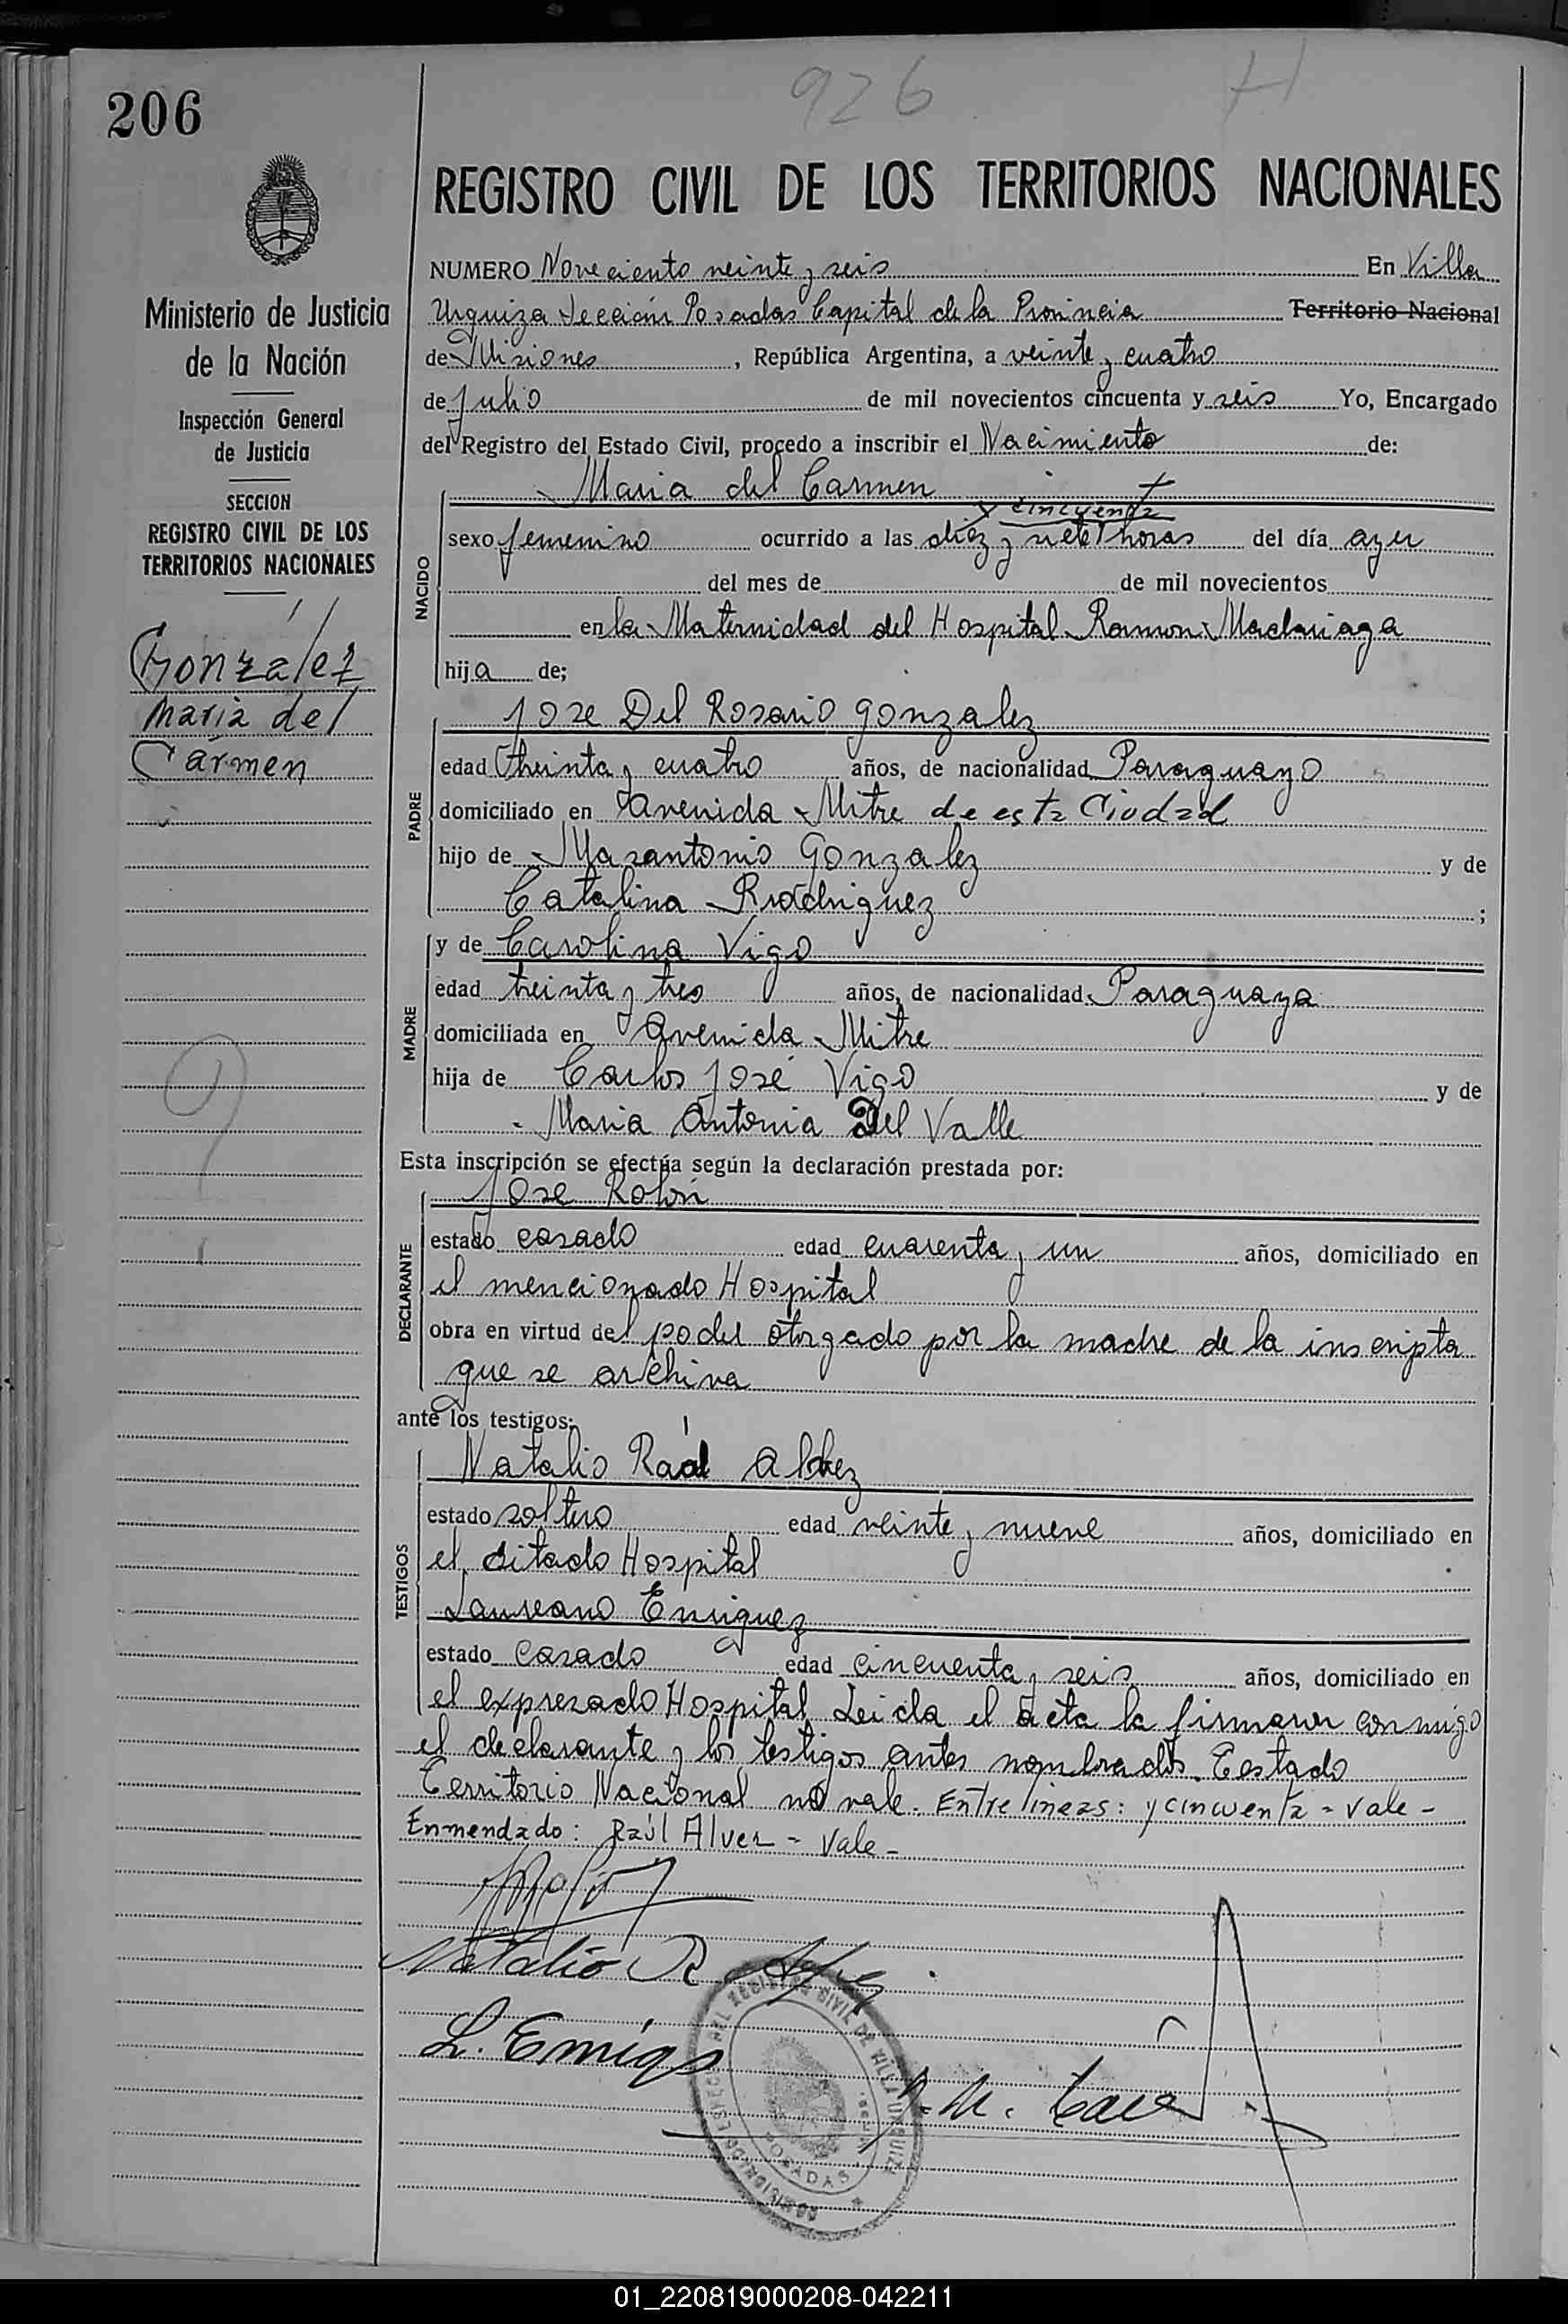 206
926
H
REGISTRO CIVIL DE LOS TERRITORIOS NACIONALES
Ministerio de Justicia
de la Nación
Inspección General
de Justicia
SECCION
REGISTRO CIVIL DE LOS
TERRITORIOS NACIONALES
González
María del
Cármen
NUMERO Noveciento veinte y seis En Villa
Urquiza Sección Posadas Capital de la Provincia Territorio Nacional
de Misiones, República Argentina, a veinte y cuatro
de julio de mil novecientos cincuenta y seis Yo, Encargado
del Registro del Estado Civil, procedo a inscribir el Nacimiento de:
NACIDO
Maria del Carmen
y cincuenta
sexo femenino ocurrido a las diez y siete horas del día ayer
del mes de de mil novecientos
en la Maternidad del Hospital Ramon Madariaga
hija de;
PADRE
Jose Del Rosario Gonzalez
edad treinta y cuatro años, de nacionalidad Paraguayo
domiciliado en Avenida Mitre de esta Ciudad
hijo de Masantonio Gonzalez y de
Catalina Rodriguez ;
MADRE
y de Carolina Vigo
edad treinta y tres años, de nacionalidad Paraguaya
domiciliada en Avenida Mitre
hija de Carlos José Vigo y de
Maria Antonia Del Valle
Esta inscripción se efectúa según la declaración prestada por:
DECLARANTE
Jose Rolón
estado casado edad cuarenta y un años, domiciliado en
el mencionado Hospital
obra en virtud del poder otorgado por la madre de la inscripta
que se archiva
ante los testigos:
TESTIGOS
Natalio Raúl Alvez
estado soltero edad veinte y nueve años, domiciliado en
el citado Hospital
Laureano Enriquez
estado casado edad cincuenta y seis años, domiciliado en
el expresado Hospital Leida el acta la firmaron conmigo
el declarante y los testigos antes nombrados. Testado
Territorio Nacional no vale. Entre lineas: y cincuenta = vale -
Enmendado: Raúl Alvez = vale -
Natalio R
L. Enriq
POSADAS
01_220819000208-042211